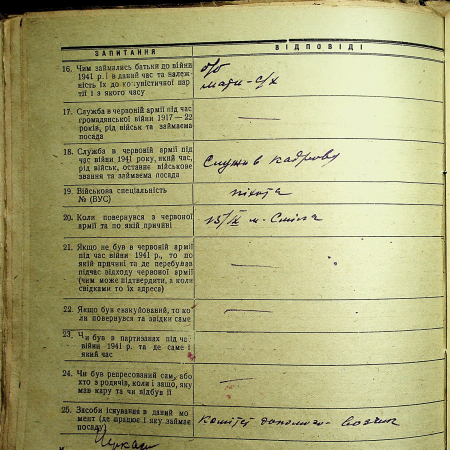 ЗАПИТАННЯ ВІДПОВІДІ
16. Чим займались батьки до війни б/п
1941 р. і в даний час та належ-
ність їх до комуністичної пар- мати - с/х
тії і з якого часу
17. Служба в червоній армії під час
громадянської війни 1917—22
років, рід військ та займаєма
посада
18. Служба в червоній армії під
час війни 1941 року, який час,
рід військ, останнє військове Служив кадрову
звання та займаєма посада
19. Військова спеціальність піхота
№ (ВУС)
20. Коли повернувся з червоної 15/IX м. Сміла
армії та по якій причині
21. Якщо не був в червоній армії
під час війни 1941 р., то по
якій причині та де перебував
підчас відходу червоної армії
(чим може підтвердити, а коли
свідками то їх адреса)
22. Якщо був евакуйований, то ко-
ли повернувся та звідки саме
23. Чи був в партизанах під час
війни 1941 р. та де саме і
який час
24. Чи був репресований сам, або
хто з родичів, коли і защо, яку
мав кару та чи відбув її
25. Засоби існування в даний мо-
мент (де працює і яку займає комітет
посаду)